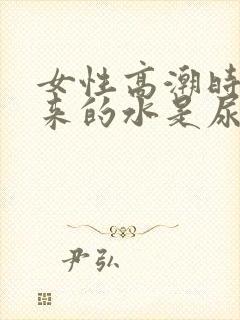 女性高潮时
来的水是尿
尹弘